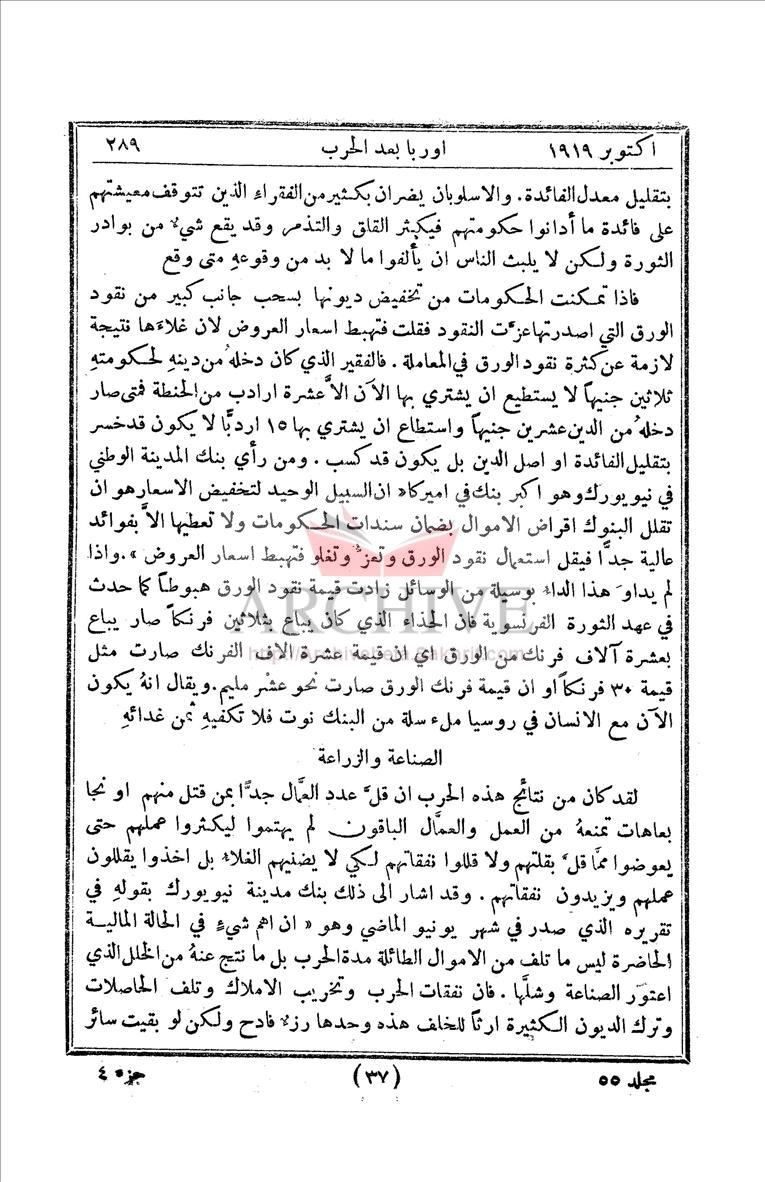 اكتوبر ١٩١٩ اوربا بعد الحرب ٢٨٩
بتقليل معدل الفائدة. والاسلوبان يضران بكثير من الفقراء الذين تتوقف معيشتهم
على فائدة ما أدانوا حكومتهم فيكثر القلق والتذمر وقد يقع شيءٌ من بوادر
الثورة ولكن لا يلبث الناس ان يألفوا ما لا بد من وقوعهِ متى وقع
فاذا تمكنت الحكومات من تخفيض ديونها بسحب جانب كبير من نقود
الورق التي اصدرتها عزَّت النقود فقلت فتهبط اسعار العروض لان غلاءَها نتيجة
لازمة عن كثرة نقود الورق في المعاملة. فالفقير الذي كان دخلهُ من دينهِ لحكومتهِ
ثلاثين جنيهاً لا يستطيع ان يشتري بها الآن الاَّ عشرة ارادب من الحنطة فمتى صار
دخلهُ من الدين عشرين جنيهاً واستطاع ان يشتري بها ١٥ اردبًّا لا يكون قد خسر
بتقليل الفائدة او اصل الدين بل يكون قد كسب. ومن رأي بنك المدينة الوطني
في نيويورك وهو اكبر بنك في اميركا «ان السبيل الوحيد لتخفيض الاسعار هو ان
تقلل البنوك اقراض الاموال بضمان سندات الحكومات ولا تعطيها الاَّ بفوائد
عالية جدًّا فيقل استعمال نقود الورق وتعزُّ وتغلو فتهبط اسعار العروض». واذا
لم يداوَ هذا الداء بوسيلة من الوسائل زادت قيمة نقود الورق هبوطاً كما حدث
في عهد الثورة الفرنسوية فان الحذاء الذي كان يباع بثلاثين فرنكاً صار يباع
بعشرة آلاف فرنك من الورق اي ان قيمة عشرة الاف الفرنك صارت مثل
قيمة ٣٠ فرنكاً او ان قيمة فرنك الورق صارت نحو عشر مليم. ويقال انهُ يكون
الآن مع الانسان في روسيا ملء سلة من البنك نوت فلا تكفيهِ ثمن غدائهِ
الصناعة والزراعة
لقد كان من نتائج هذه الحرب ان قلَّ عدد العمَّال جدًّا بمن قتل منهم او نجا
بعاهات تمنعهُ من العمل والعمَّال الباقون لم يهتموا ليكثروا عملهم حتى
يعوضوا ممَّا قلَّ بقلتهم ولا قللوا نفقاتهم لكي لا يضنيهم الغلاء بل اخذوا يقللون
عملهم ويزيدون نفقاتهم. وقد اشار الى ذلك بنك مدينة نيويورك بقولهِ في
تقريره الذي صدر في شهر يونيو الماضي وهو «ان اهم شيءٍ في الحالة المالية
الحاضرة ليس ما تلف من الاموال الطائلة مدة الحرب بل ما نتج عنهُ من الخلل الذي
اعتور الصناعة وشلَّها. فان نفقات الحرب وتخريب الاملاك وتلف الحاصلات
وترك الديون الكثيرة ارثاً للخلف هذه وحدها رزءٌ فادح ولكن لو بقيت سائر
مجلد ٥٥ (٣٧) جزء ٤
ARCHIVE